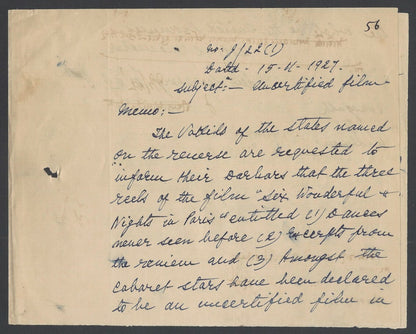 56
No: J/22(1)
Dated - 15-11-1927.
Subject:- Uncertified film
Memo:-
The Vakils of the states named
on the reverse are requested to
inform their Darbars that the three
reels of the film "Six Wonderful
Nights in Paris" entitled (1) Dances
never seen before (2) Excerpts from
the review and (3) Amongst the
Cabaret stars have been declared
to be an uncertified film in